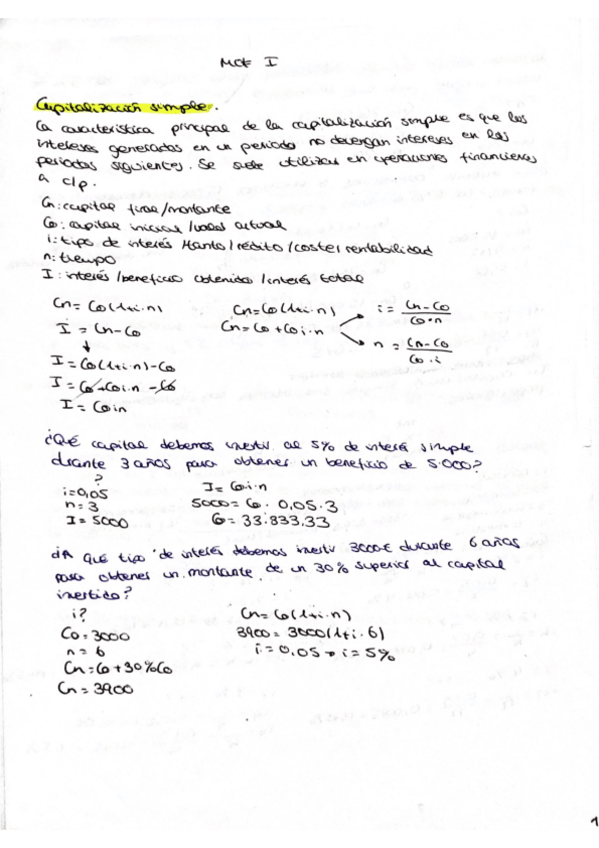 MCF I
Capitalización simple.
La característica principal de la capitalización simple es que los
intereses generados en un periodo no devengan intereses en los
periodos siguientes. Se suele utilizar en operaciones financieras
a c/p.
Cn: capital final/montante
C0: capital inicial/valor actual
i: tipo de interés /tanto/rédito/coste/rentabilidad
n: tiempo
I: interés/beneficio obtenido/interés total
Cn = C0(1+i·n) Cn = C0(1+i·n) i = Cn-C0 / C0·n
I = Cn-C0 Cn = C0 + C0·i·n n = Cn-C0 / C0·i
I = C0(1+i·n)-C0
I = C0+C0·i·n - C0
I = C0·i·n
¿Qué capital debemos invertir al 5% de interés simple
durante 3 años para obtener un beneficio de 5.000?
?
i=0,05 I = C0·i·n
n=3 5000 = C0 · 0,05 · 3
I = 5000 C0 = 33.833,33
¿A qué tipo de interés debemos invertir 3000€ durante 6 años
para obtener un montante de un 30% superior al capital
invertido?
i? Cn = C0(1+i·n)
C0 = 3000 3900 = 3000(1+i·6)
n = 6 i = 0,05 → i = 5%
Cn = C0 + 30%C0
Cn = 3900
1